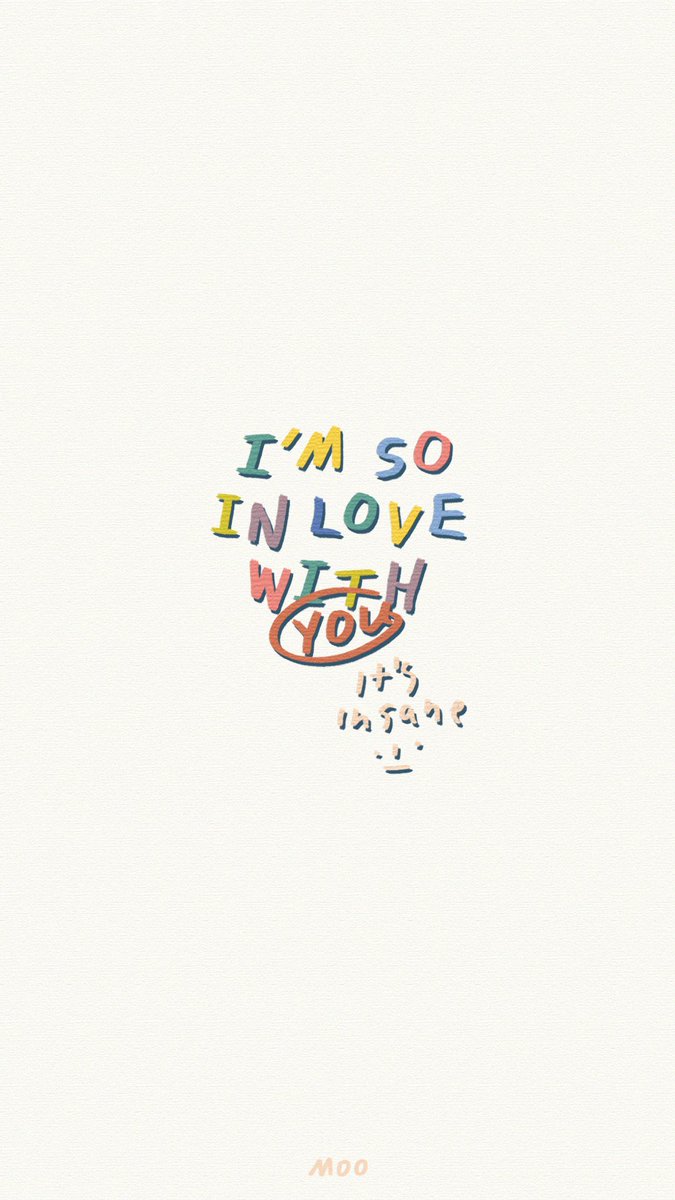 I'M SO
IN LOVE
WITH
YOU
it's
insane
MOO